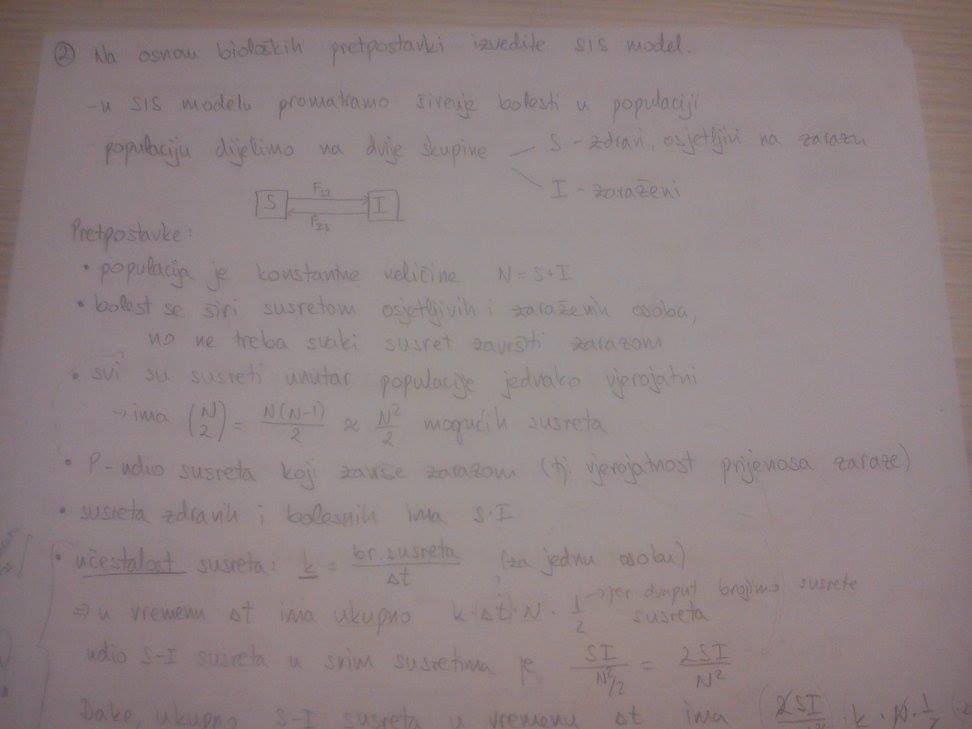 ② Na osnovu bioloških pretpostavki izvedite SIS model.
- u SIS modelu promatramo širenje bolesti u populaciji
populaciju dijelimo na dvije skupine
S - zdravi, osjetljivi na zarazu
I - zaraženi
S F12 I
F21
Pretpostavke:
• populacija je konstantne veličine N = S + I
• bolest se širi susretom osjetljivih i zaraženih osoba,
no ne treba svaki susret završiti zarazom
• svi su susreti unutar populacije jednako vjerojatni
→ ima (N 2) = N(N-1)/2 ≈ N²/2 mogućih susreta
• P - udio susreta koji završe zarazom (tj. vjerojatnost prijenosa zaraze)
• susreta zdravih i bolesnih ima S·I
• učestalost susreta: k = br. susreta/Δt (za jednu osobu)
⇒ u vremenu Δt ima ukupno k·Δt·N·1/2 susreta
→ jer dvaput brojimo susrete
udio S-I susreta u svim susretima je SI/(N²/2) = 2SI/N²
Dakle, ukupno S-I susreta u vremenu Δt ima (2SI · k · N · 1/2